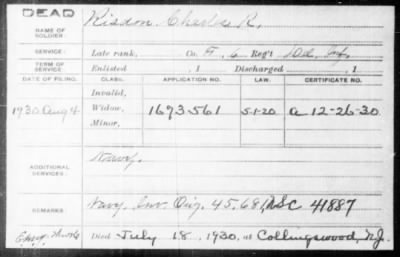 DEAD
NAME OF SOLDIER: Risdon, Charles R.
SERVICE: Late rank, Co. F, 6 Reg't Del. Inf.
TERM OF SERVICE: Enlisted , 1 Discharged , 1
DATE OF FILING. CLASS. APPLICATION NO. LAW. CERTIFICATE NO.
Invalid,
1930 Aug 4 Widow, 1673561 5-1-20 a 12-26-30
Minor,
ADDITIONAL SERVICES: Navy.
REMARKS: Navy Inv. Orig. 45.681, NSC 41887
Died July 18, 1930, at Collingswood, N.J.